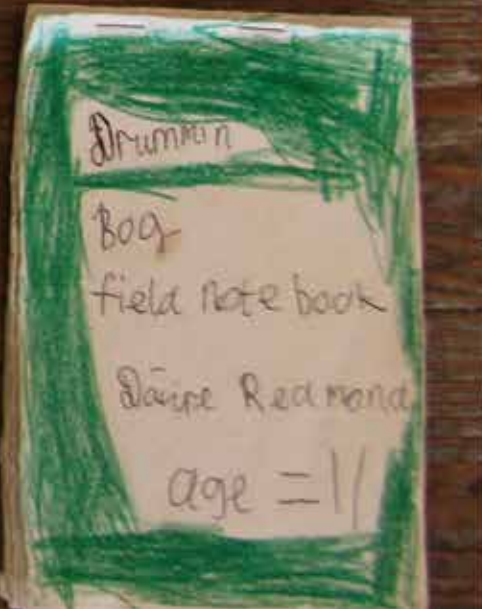 Drummin
Bog
field note book
Dáire Redmond
age = 11